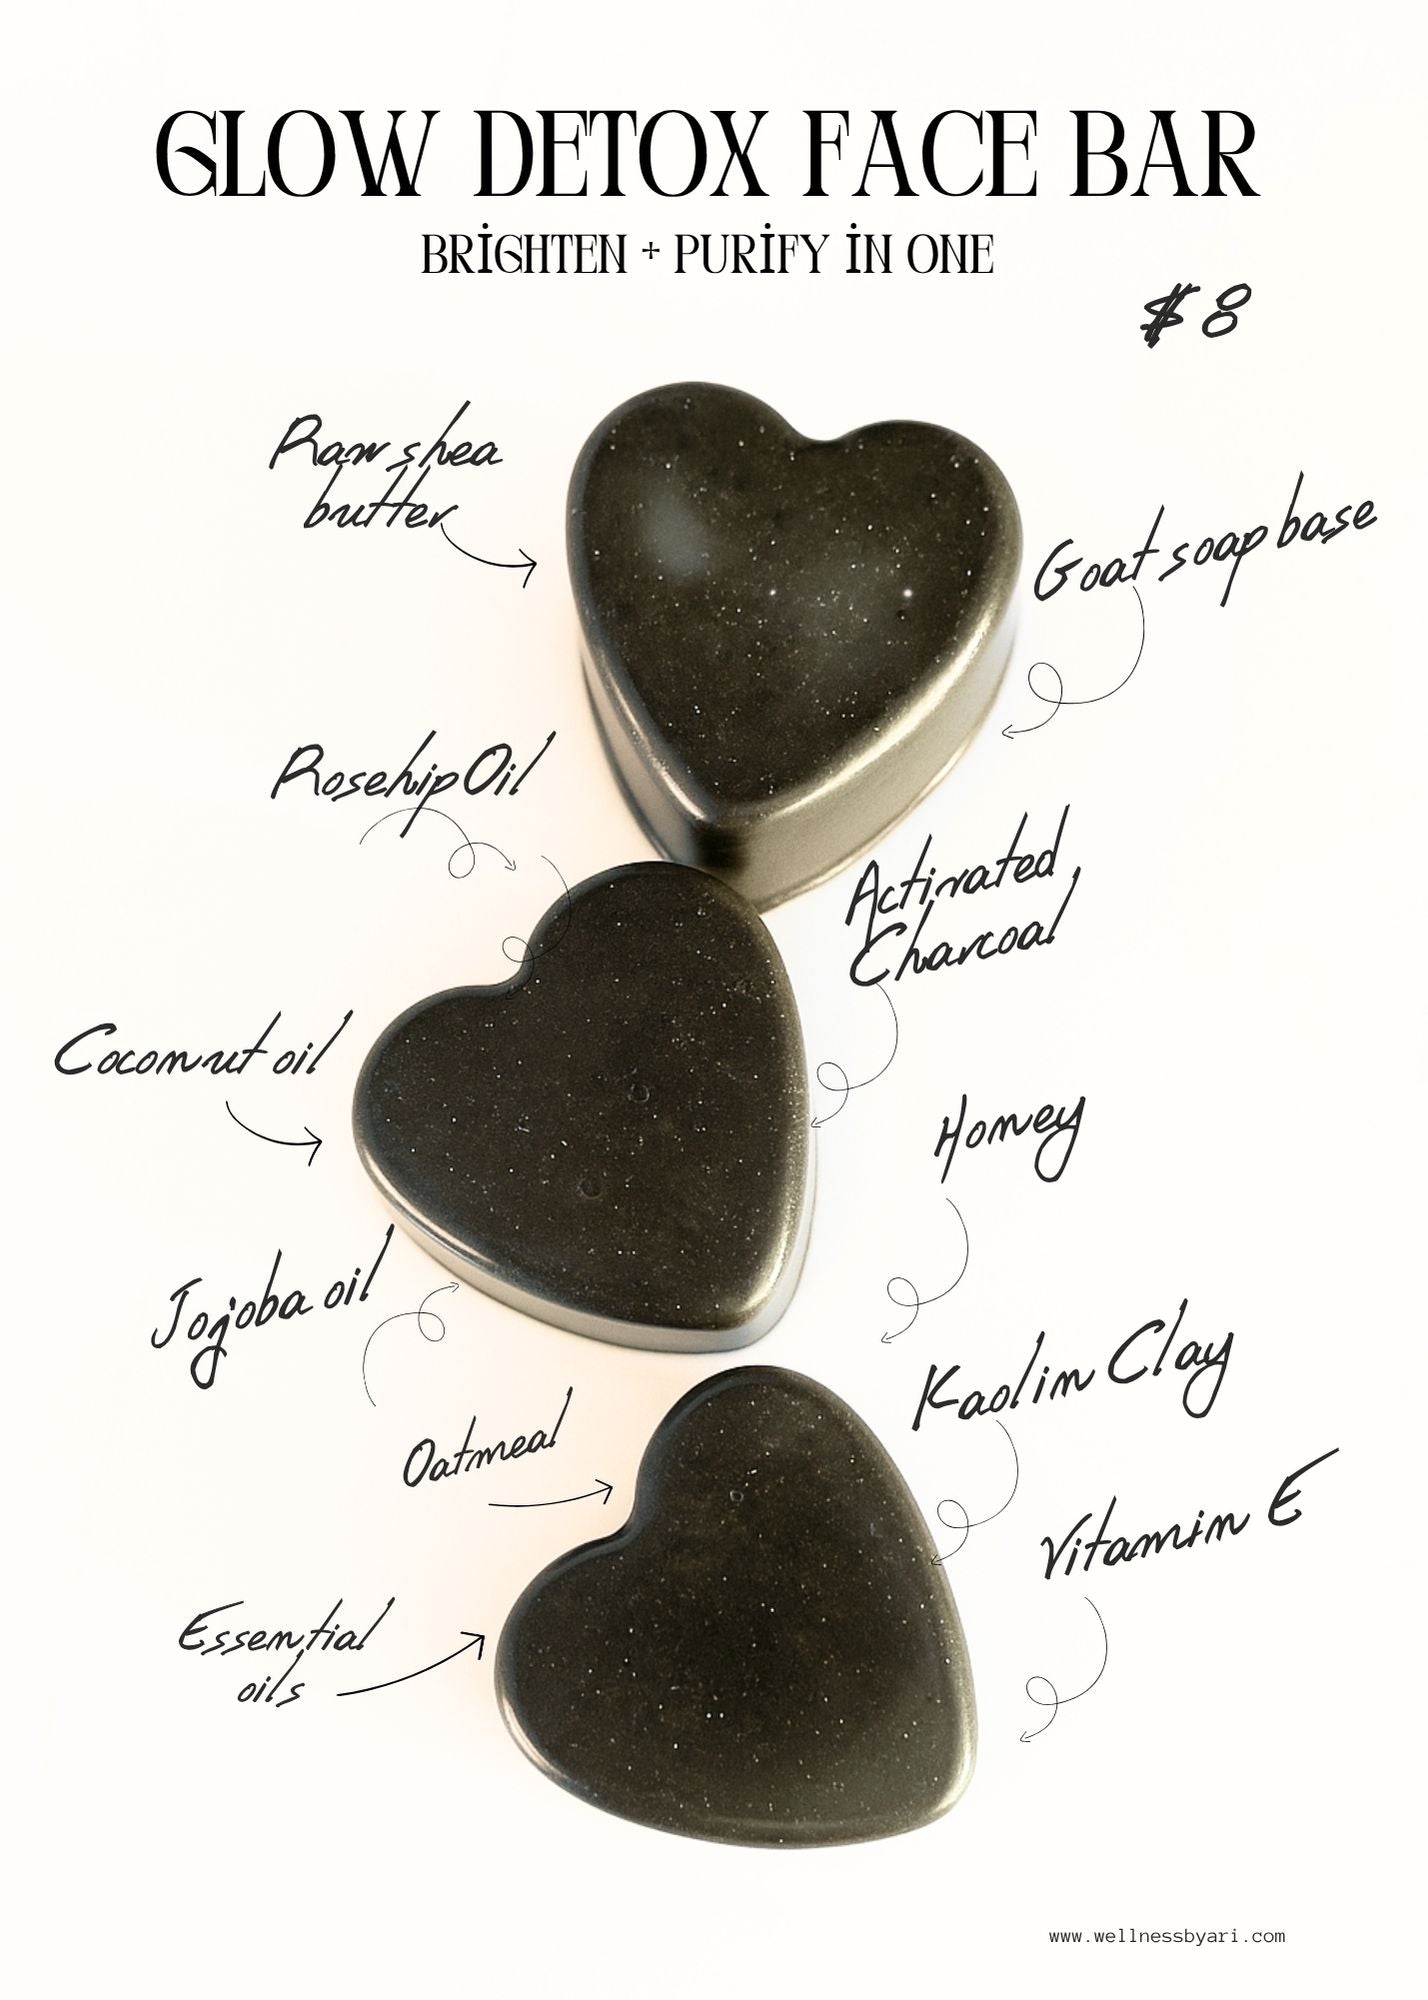 GLOW DETOX FACE BAR
BRİGHTEN + PURİFY İN ONE
$8
Raw shea
butter
Goat soap base
Rosehip Oil
Activated
Charcoal
Coconut oil
Honey
Jojoba oil
Kaolin Clay
Oatmeal
Vitamin E
Essential
oils
www.wellnessbyari.com